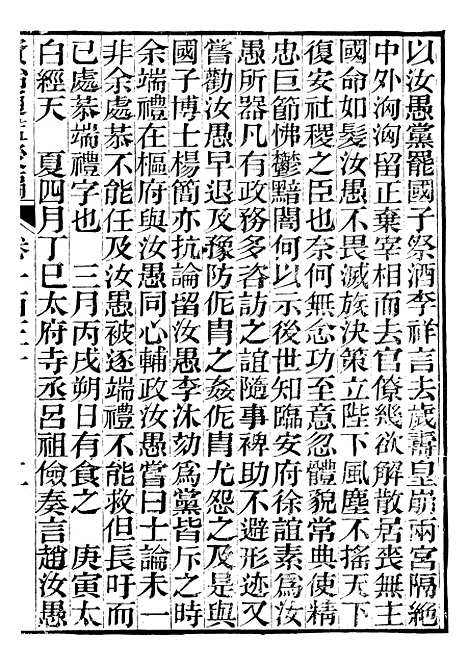 以汝愚黨罷國子祭酒李祥言去歲壽皇崩兩宮隔絶
中外洶洶留正棄宰相而去官僚幾欲解散居喪無主
國命如髮汝愚不畏滅族決策立陛下風塵不搖天下
復安社稷之臣也奈何無念功至意忽體貌常典使精
忠巨節怫鬱黯闇何以示後世知臨安府徐誼素爲汝
愚所器凡有政務多咨訪之誼隨事裨助不避形迹又
嘗勸汝愚早退及豫防侂胄之姦侂胄尤怨之及是與
國子博士楊簡亦抗論留汝愚李沐劾爲黨皆斥之時
余端禮在樞府與汝愚同心輔政汝愚嘗曰士論未一
非余處恭不能任及汝愚被逐端禮不能救但長吁而
已處恭端禮字也 三月丙戌朔日有食之 庚寅太
白經天 夏四月丁巳太府寺丞呂祖儉奏言趙汝愚